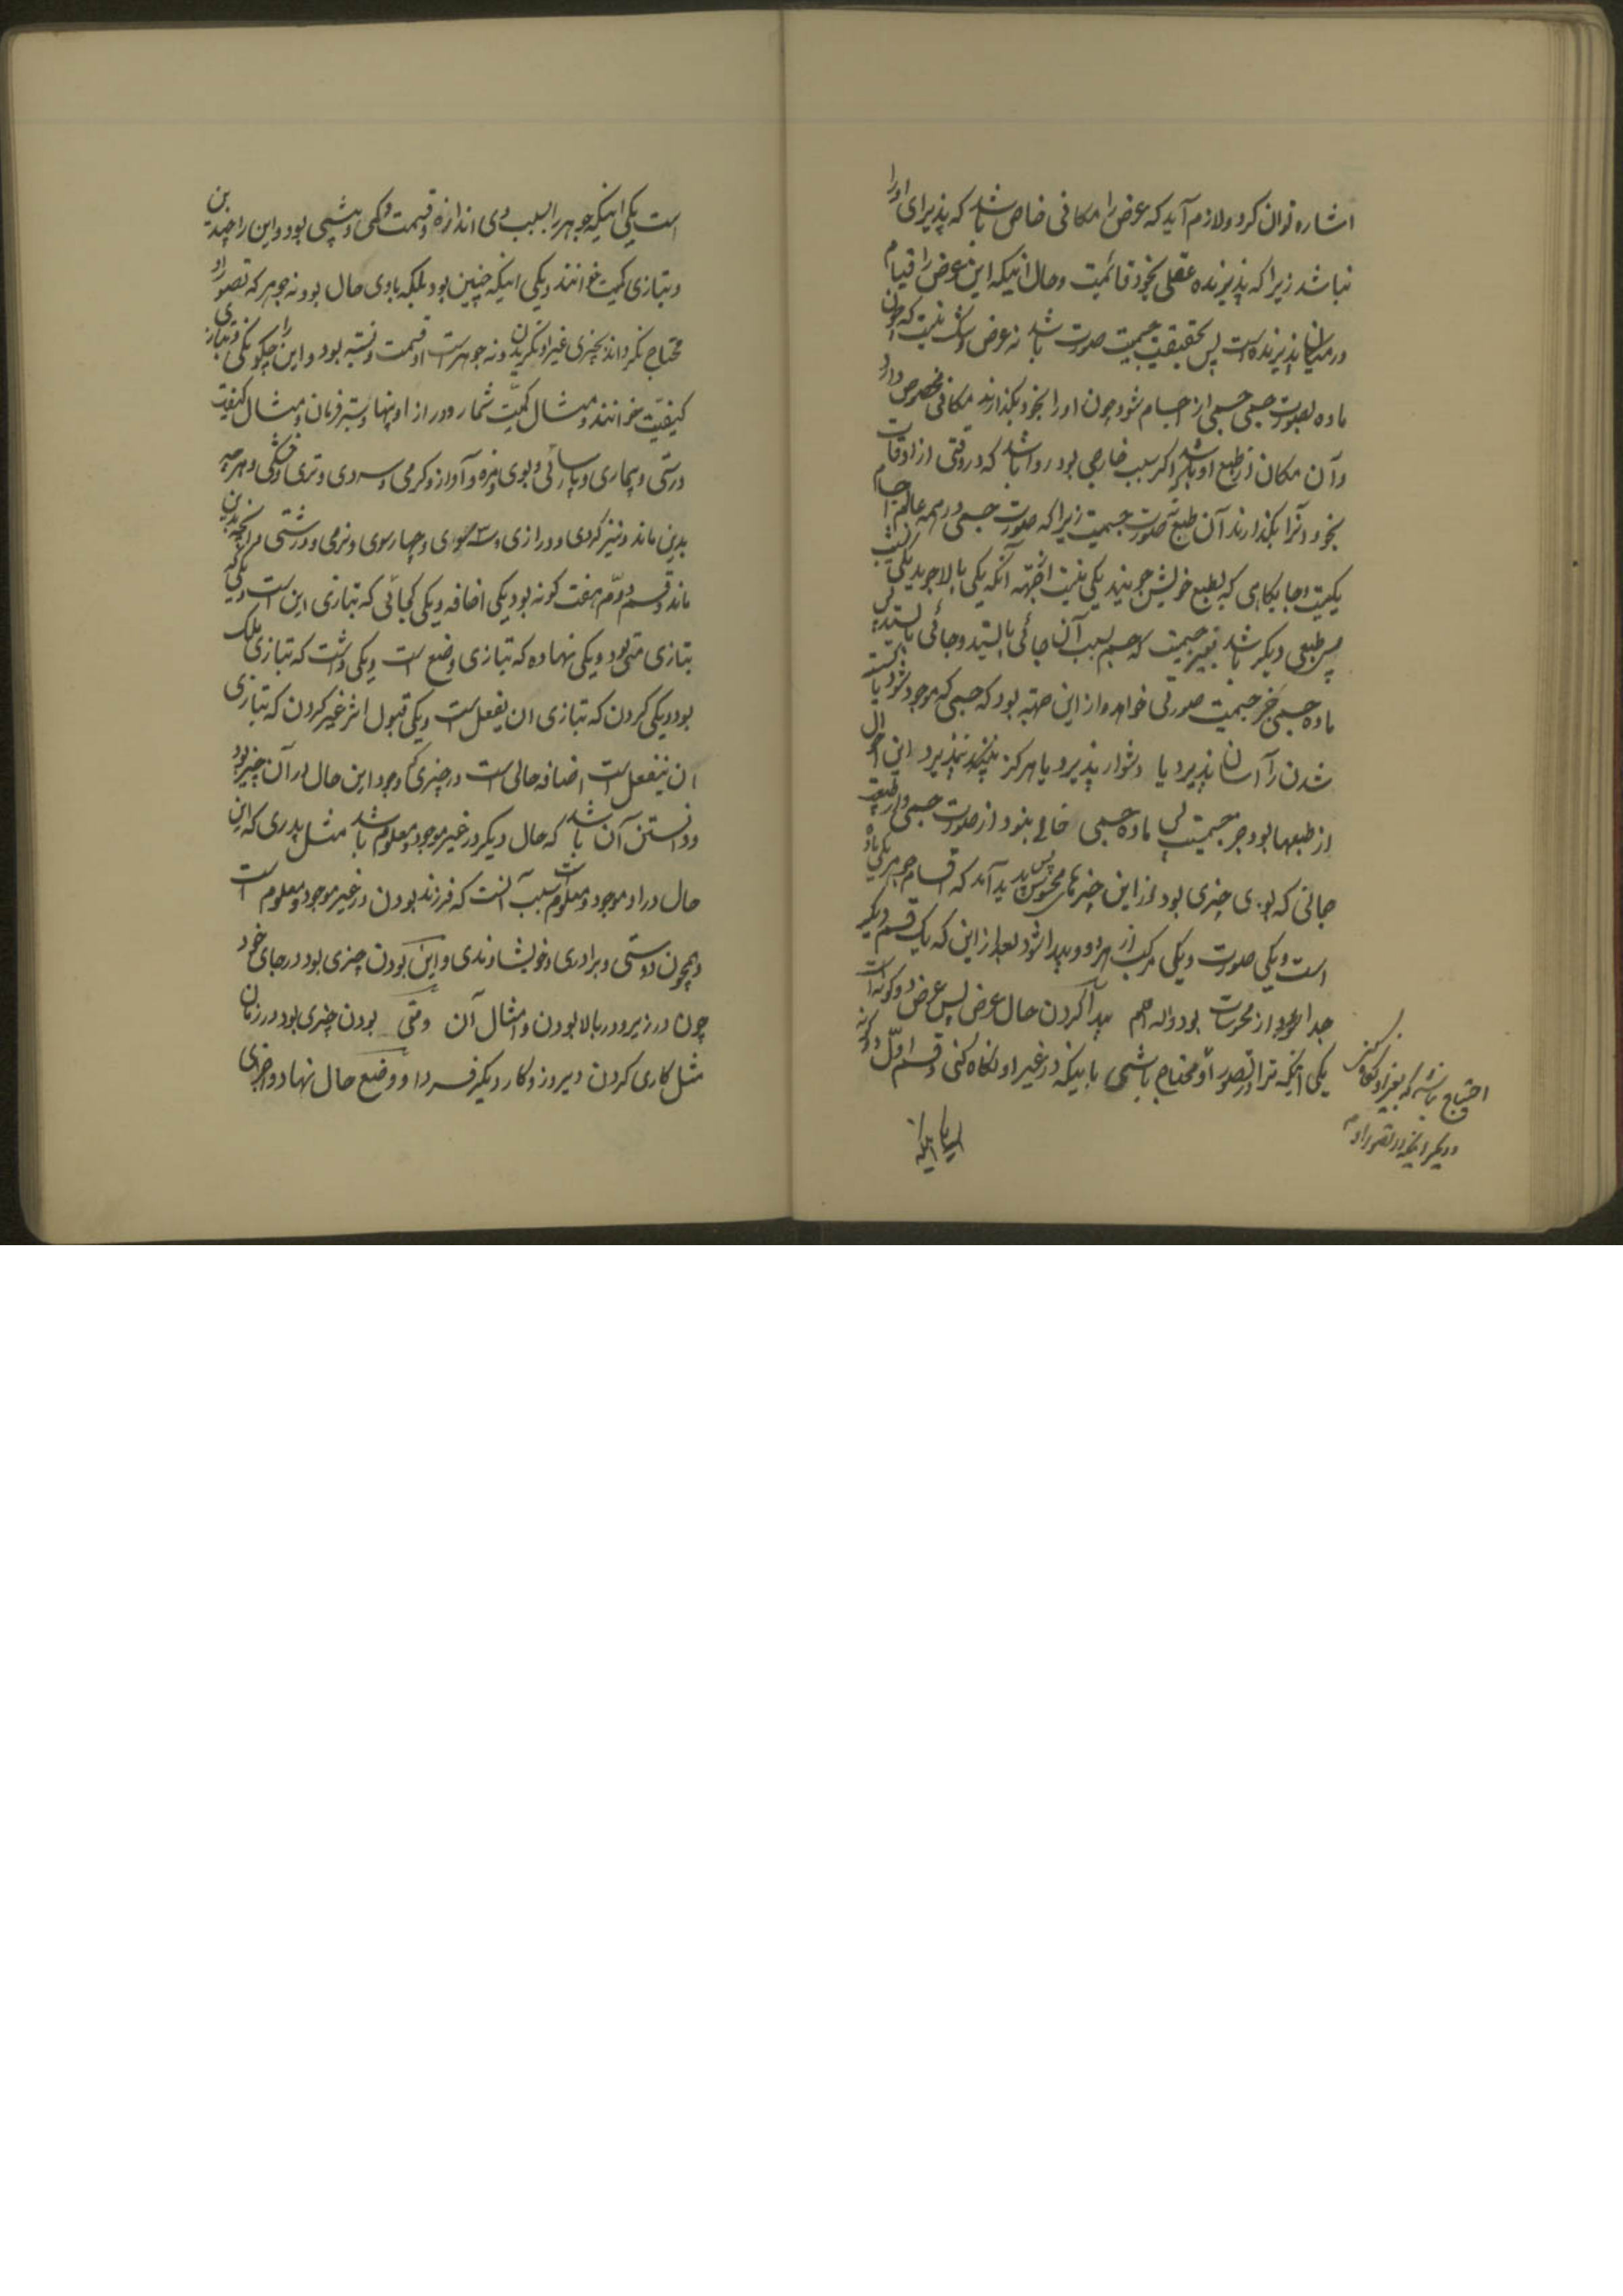 اشاره توان کرد و لازم آید که عرض را مکانی خاص باشد که پذیرای او را
نباشد زیرا که پذیرنده عقلی بخود قائمیت و حال انیکه این عرض را قیام
در میان پذیرنده است پس بحقیقت جسمیت صورت باشد نه عرض و شک نیست که چون
ماده بصورت جسمی جسمی از اجسام شود چون او را بخود بگذارند مکانی مخصوص دارد
و آن مکان از طبع او باشد اگر سبب خارجی بود روا باشد که در وقتی از اوقات
بخود و آنرا بگذارند آن طبع نه صورت جسمیت زیرا که صورت جسمی در همه عالم اجسام
یکیست و جایگاهی که بطبع خویش جویند یکی نیست از جهة آنکه یکی بالا جوید یکی نشیب
پس طبعی دیگر باشد بغیر جسمیت که جسم بسبب آن جائی بایستد و جائی نایستد پس
ماده جسمی جز جسمیت صورتی خواهد و از این جهته بود که جسمی که موجود شود یا
شدن را آسان پذیرد یا دشوار پذیرد یا هرگز نپذیرد این احوال
از طبعها بود جز جسمیت پس ماده جسمی خالی نبود از صورت جسمی و از طبیعت
جائی که بوی چیزی بود از این چیزهای محسوس پس پدید آمد که اقسام جوهر یکی ماده
است و یکی صورت و یکی مرکب از هر دو و پیدا شود بعد از این که یک قسم دیگر
جدا از محسوسات بود والله اعلم پیدا کردن حال عرض پس عرض دو گونه است
یکی انیکه ترا در تصور او محتاج باشی بانیکه در غیر او نگاه کنی و قسم اول دو گونه
احتیاج باشد که بغیر او نگاه کنی
و دیگر انیکه در تصور او
است یکی انیکه جوهر را بسبب وی اندازه و قسمت و کمی و بیشی بود و این را چندین
و بتازی کمیت خوانند و یکی انیکه چنین نبود بلکه با وی حال بود نه جوهر که تصور او
محتاج نگرداند بچیزی غیر او نگریدن و نه جوهر است او قسمت و نسبه بود و این را چگونگی و بتازی
کیفیت خوانند و مثال کمیت شمار و درازا و پهنا و ستبر و زمان و مثال کیفیت
درستی و بیماری و پارسائی و بوی و مزه و آواز و گرمی و سردی و تری و خشکی و هر چه
بدین ماند و نیز گردی و درازی و سه سوی و چهار سوی و نرمی و درشتی هر آنچه بدین
ماند و قسم دوم هفت گونه بود یکی اضافه و یکی کجائی که بتازی این است و یکی کی که
بتازی متی بود و یکی نهاده که بتازی وضع است و یکی داشت که بتازی ملک
بود و یکی کردن که بتازی ان یفعل است و یکی قبول اثر غیر کردن که بتازی
ان ینفعل است اضافه حالی است در چیزی که وجود این حال در آن چیز بود
و دانستن آن باشد که حال دیگر در غیر موجود و معلوم باشد مثل پدری که این
حال در او موجود و معلوم است بسبب آنست که فرزند بودن در غیر موجود و معلوم است
و همچون دوستی و برادری و خویشاوندی و این بودن چیزی بود در جای خود
چون در زیر و در بالا بودن و امثال آن و متی بودن چیزی بود در زمان
مثل کاری کردن دیروز و کار دیگر فردا و وضع حال نهاد و اجزای